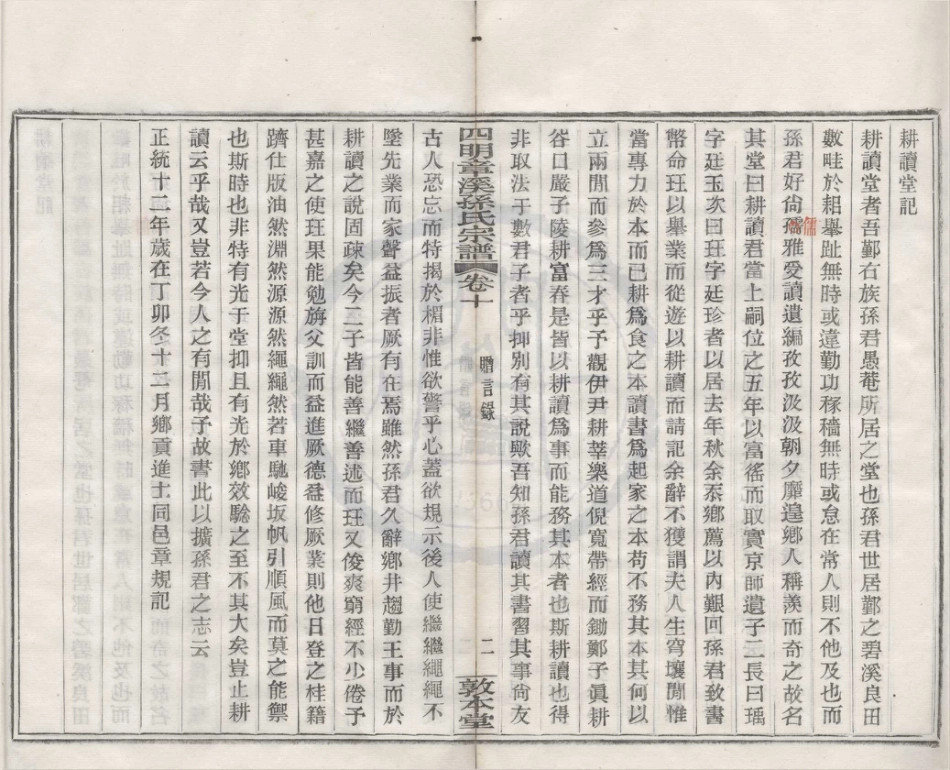 耕讀堂記
耕讀堂者吾鄞右族孫君愚菴所居之堂也孫君世居鄞之碧溪良田
數畦於耜舉趾無時或違勤功稼穡無時或怠在常人則不他及也而
孫君好尙儒雅愛讀遺編孜孜汲汲朝夕靡遑鄉人稱羨而奇之故名
儒
其堂曰耕讀君當上嗣位之五年以富徭而取實京師遺子二長曰瑀
字廷玉次曰玨字廷珍者以居去年秋余忝鄉薦以內艱回孫君致書
幣命玨以舉業而從遊以耕讀而請記余辭不獲謂夫人生穹壤閒惟
當專力於本而已耕爲食之本讀書爲起家之本苟不務其本其何以
立兩閒而參爲三才乎予觀伊尹耕莘樂道倪寬帶經而鋤鄭子眞耕
谷口嚴子陵耕富春是皆以耕讀爲事而能務其本者也斯耕讀也得
非取法于數君子者乎抑別有其説歟吾知孫君讀其書習其事尙友
四明章溪孫氏宗譜 卷十 贈言錄 二 敦本堂
古人恐忘而特揭於楣非惟欲警乎心蓋欲規示後人使繼繼繩繩不
墜先業而家聲益振者厥有在焉雖然孫君久辭鄉井趨勤王事而於
耕讀之説固疎矣今二子皆能善繼善述而玨又俊爽窮經不少倦予
甚嘉之使玨果能勉旃父訓而益進厥德益修厥業則他日登之桂籍
躋仕版油然淵然源源然繩繩然若車馳峻坂帆引順風而莫之能禦
也斯時也非特有光于堂抑且有光於鄉效騐之至不其大矣豈止耕
讀云乎哉又豈若今人之有閒哉予故書此以擴孫君之志云
正統十二年歲在丁卯冬十二月鄉貢進士同邑章規記